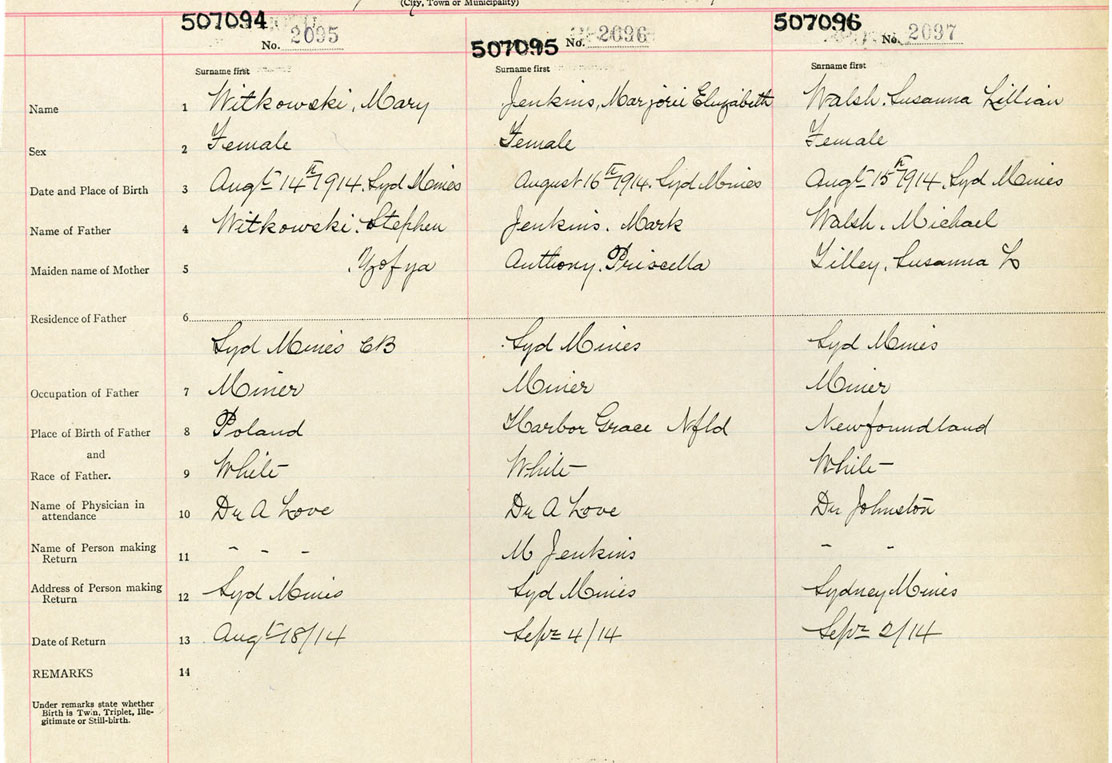 (City, Town or Municipality)
507094 No. 2095 507095 No. 2096 507096 No. 2097
Surname first Surname first Surname first
Name 1 Witkowski, Mary Jenkins, Marjorie Elizabeth Walsh, Susanna Lillian
Sex 2 Female Female Female
Date and Place of Birth 3 Augt 14th 1914. Syd Mines August 16th 1914. Syd Mines Augt 15th 1914. Syd Mines
Name of Father 4 Witkowski, Stephen Jenkins, Mark Walsh, Michael
Maiden name of Mother 5 Zofya Anthony, Priscella Lilley, Susanna L
Residence of Father 6
Syd Mines CB Syd Mines Syd Mines
Occupation of Father 7 Miner Miner Miner
Place of Birth of Father 8 Poland Harbor Grace Nfld Newfoundland
and
Race of Father. 9 White White White
Name of Physician in
attendance 10 Dr A Love Dr A Love Dr Johnston
Name of Person making
Return 11 - - - M Jenkins - -
Address of Person making
Return 12 Syd Mines Syd Mines Sydney Mines
Date of Return 13 Augt 18/14 Sept 4/14 Sept 2/14
REMARKS 14
Under remarks state whether
Birth is Twin, Triplet, Ille-
gitimate or Still-birth.